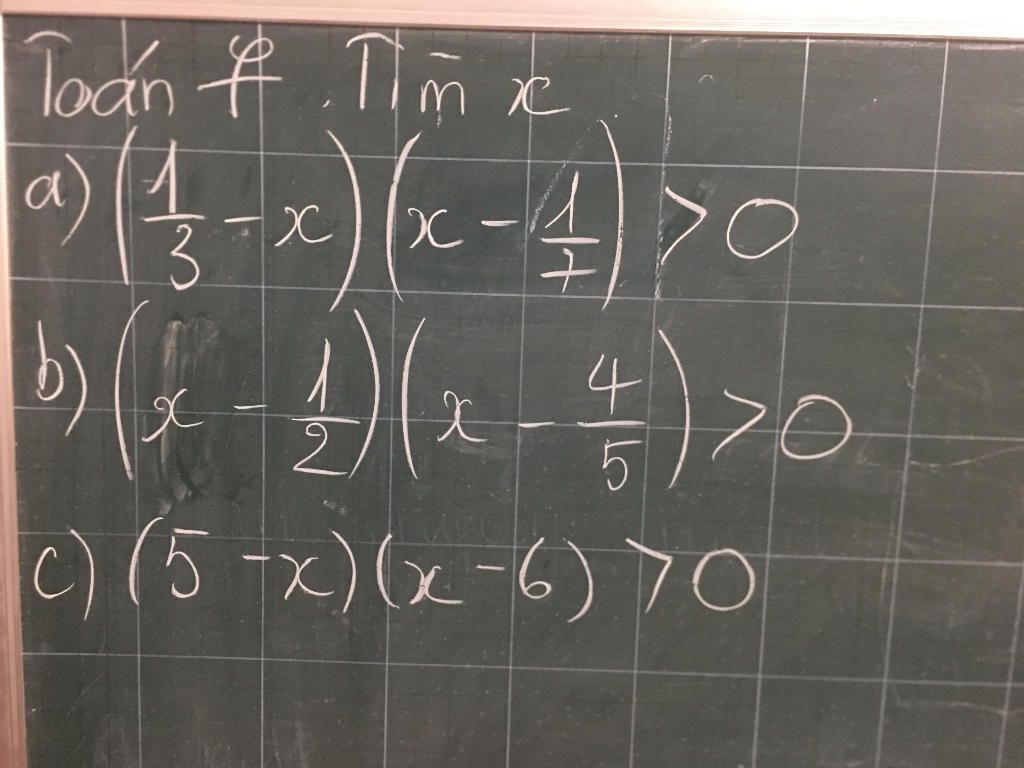 Toán 7. Tìm x
a) (1/3 - x)(x - 1/7) > 0
b) (x - 1/2)(x - 4/5) > 0
c) (5 - x)(x - 6) > 0